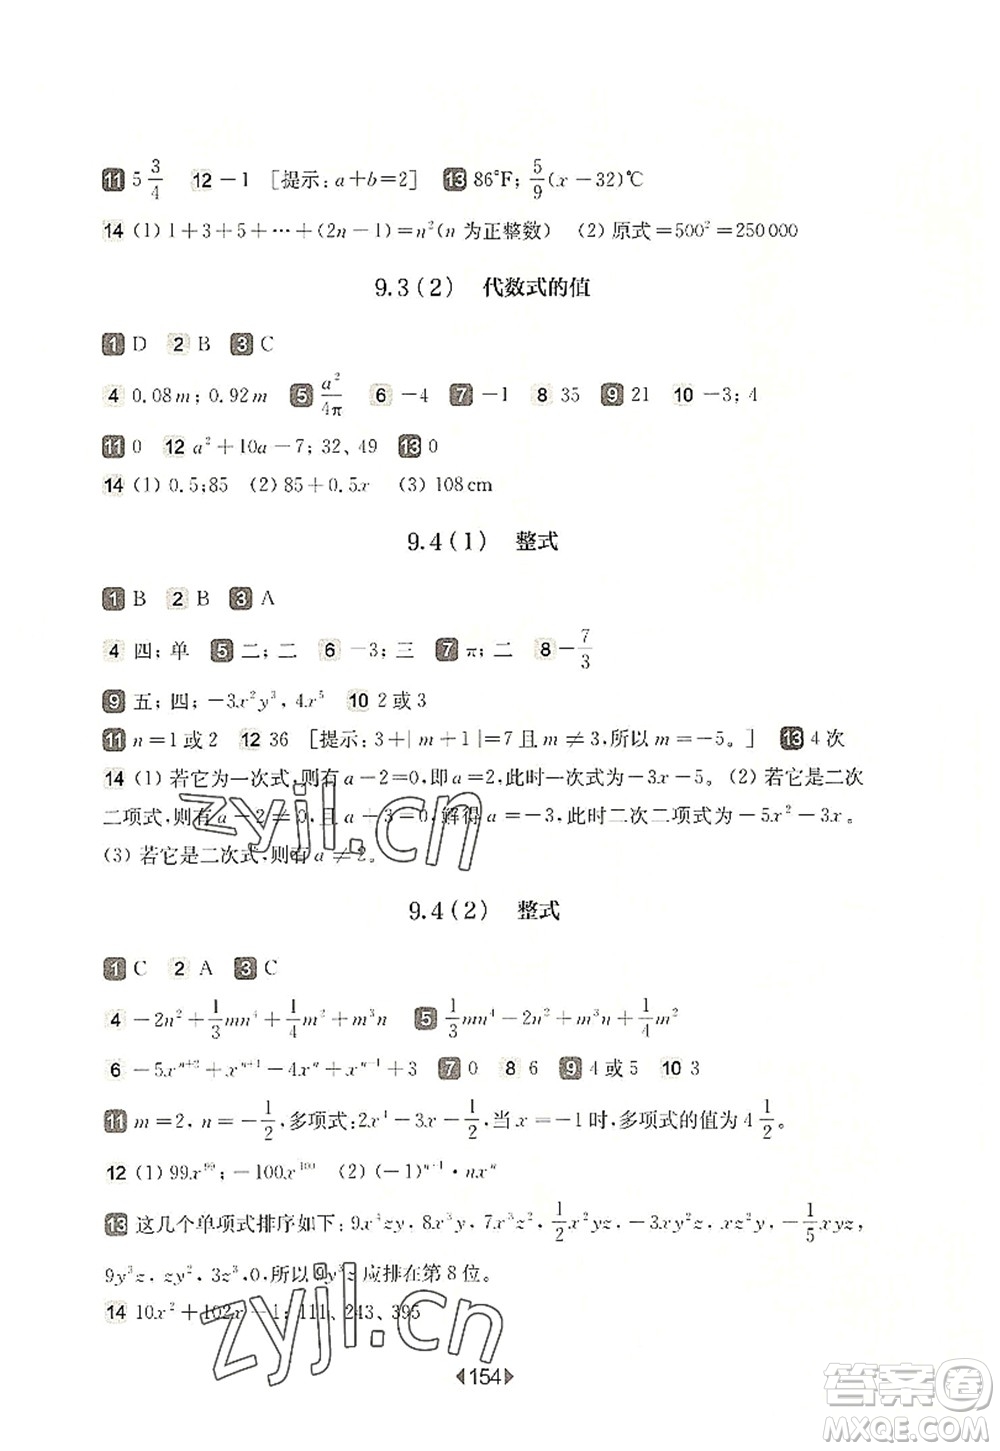 11 5 3/4 12 －1 [提示：a＋b＝2] 13 86°F；5/9(x－32)℃
14 (1) 1＋3＋5＋…＋(2n－1)＝n²(n 为正整数) (2) 原式＝500²＝250 000
9.3(2) 代数式的值
1 D 2 B 3 C
4 0.08m；0.92m 5 a²/4π 6 －4 7 －1 8 35 9 21 10 －3；4
11 0 12 a²＋10a－7；32、49 13 0
14 (1) 0.5；85 (2) 85＋0.5x (3) 108 cm
9.4(1) 整式
1 B 2 B 3 A
4 四；单 5 二；二 6 －3；三 7 π；二 8 －7/3
9 五；四；－3x²y³，4x⁵ 10 2 或 3
11 n＝1 或 2 12 36 [提示：3＋|m＋1|＝7 且 m≠3，所以 m＝－5。] 13 4 次
14 (1) 若它为一次式，则有 a－2＝0，即 a＝2，此时一次式为－3x－5。(2) 若它是二次
二项式，则有 a－2≠0，且 a＋3＝0，解得 a＝－3，此时二次二项式为－5x²－3x。
(3) 若它是二次式，则有 a≠2。
zyjl.cn
9.4(2) 整式
1 C 2 A 3 C
4 －2n²＋1/3mn⁴＋1/4m²＋m³n 5 1/3mn⁴－2n²＋m³n＋1/4m²
6 －5xⁿ⁺²＋xⁿ⁺¹－4xⁿ＋3 7 0 8 6 9 4 或 5 10 3
11 m＝2，n＝－1/2，多项式：2x⁴－3x－1/2，当 x＝－1 时，多项式的值为 4 1/2。
12 (1) 99x⁹⁹；－100x¹⁰⁰ (2) (－1)ⁿ⁻¹·nxⁿ
13 这几个单项式排序如下：9x³zy，8x³y，7x²z²，1/2x²yz，－3x²yz，xz²y，－1/5xyz，
9y³z，zy²，z³，0，所以 9y³z 应排在第 8 位。
14 10x²＋102x－1；111、243、395
zyjl.cn
154
答案圈
MXQE.COM